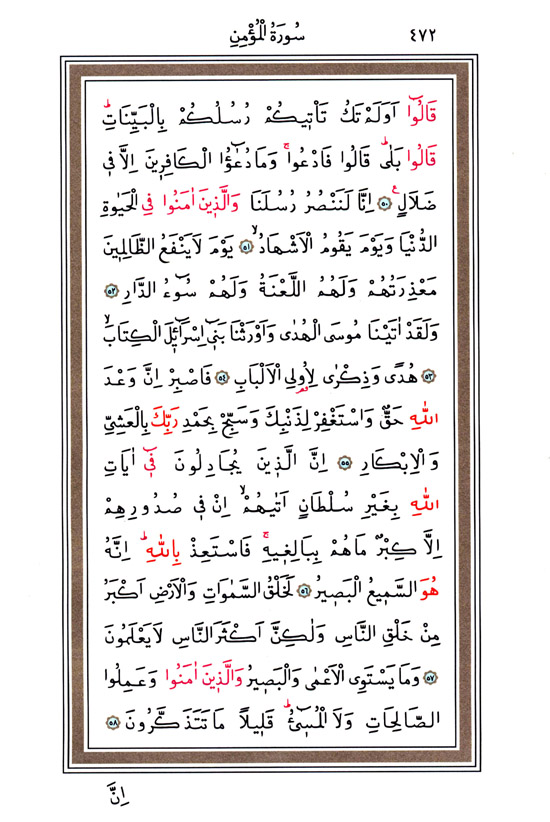 ٤٧٢ سُورَةُ الْمُؤْمِنِ
قَالُٓوا اَوَلَمْ تَكُ تَأْتٖيكُمْ رُسُلُكُمْ بِالْبَيِّنَاتِؕ
قَالُوا بَلٰىؕ قَالُوا فَادْعُواۚ وَمَا دُعٰٓؤُا الْكَافِرٖينَ اِلَّا فٖي
ضَلَالٍࣖ ﴿٥٠﴾ اِنَّا لَنَنْصُرُ رُسُلَنَا وَالَّذٖينَ اٰمَنُوا فِي الْحَيٰوةِ
الدُّنْيَا وَيَوْمَ يَقُومُ الْاَشْهَادُۙ ﴿٥١﴾ يَوْمَ لَا يَنْفَعُ الظَّالِمٖينَ
مَعْذِرَتُهُمْ وَلَهُمُ اللَّعْنَةُ وَلَهُمْ سُٓوءُ الدَّارِ ﴿٥٢﴾
وَلَقَدْ اٰتَيْنَا مُوسَى الْهُدٰى وَاَوْرَثْنَا بَنٖٓي اِسْرَٓائٖلَ الْكِتَابَۙ
﴿٥٣﴾ هُدًى وَذِكْرٰى لِاُولِي الْاَلْبَابِ ﴿٥٤﴾ فَاصْبِرْ اِنَّ وَعْدَ
اللّٰهِ حَقٌّ وَاسْتَغْفِرْ لِذَنْبِكَ وَسَبِّحْ بِحَمْدِ رَبِّكَ بِالْعَشِيِّ
وَالْاِبْكَارِ ﴿٥٥﴾ اِنَّ الَّذٖينَ يُجَادِلُونَ فٖٓي اٰيَاتِ
اللّٰهِ بِغَيْرِ سُلْطَانٍ اَتٰيهُمْۙ اِنْ فٖي صُدُورِهِمْ
اِلَّا كِبْرٌ مَا هُمْ بِبَالِغٖيهِۚ فَاسْتَعِذْ بِاللّٰهِؕ اِنَّهُ
هُوَ السَّمٖيعُ الْبَصٖيرُ ﴿٥٦﴾ لَخَلْقُ السَّمٰوَاتِ وَالْاَرْضِ اَكْبَرُ
مِنْ خَلْقِ النَّاسِ وَلٰكِنَّ اَكْثَرَ النَّاسِ لَا يَعْلَمُونَ
﴿٥٧﴾ وَمَا يَسْتَوِي الْاَعْمٰى وَالْبَصٖيرُ وَالَّذٖينَ اٰمَنُوا وَعَمِلُوا
الصَّالِحَاتِ وَلَا الْمُسٖٓيءُؕ قَلٖيلاً مَا تَتَذَكَّرُونَ ﴿٥٨﴾
اِنَّ